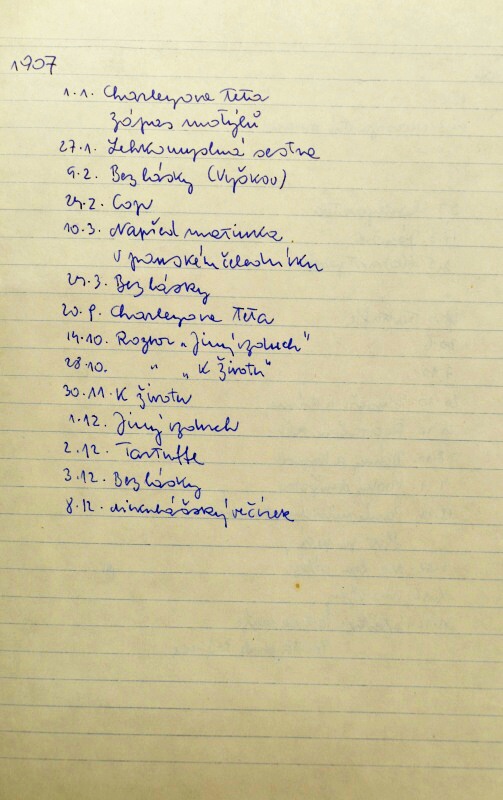 1907
1.1. Charleyova teta
Zápas motýlů
27.1. Lehkomyslná sestra
9.2. Bez lásky (Vyškov)
24.2. Cop
10.3. Napřed maminka
V panském čeledníku
24.3. Bez lásky
20.9. Charleyova Teta
14.10. Rozbor „Jiný vzduch"
28.10. " „K životu"
30.11. K životu
1.12. Jiný vzduch
2.12. Tartuffe
3.12. Bez lásky
8.12. mikulášský večírek